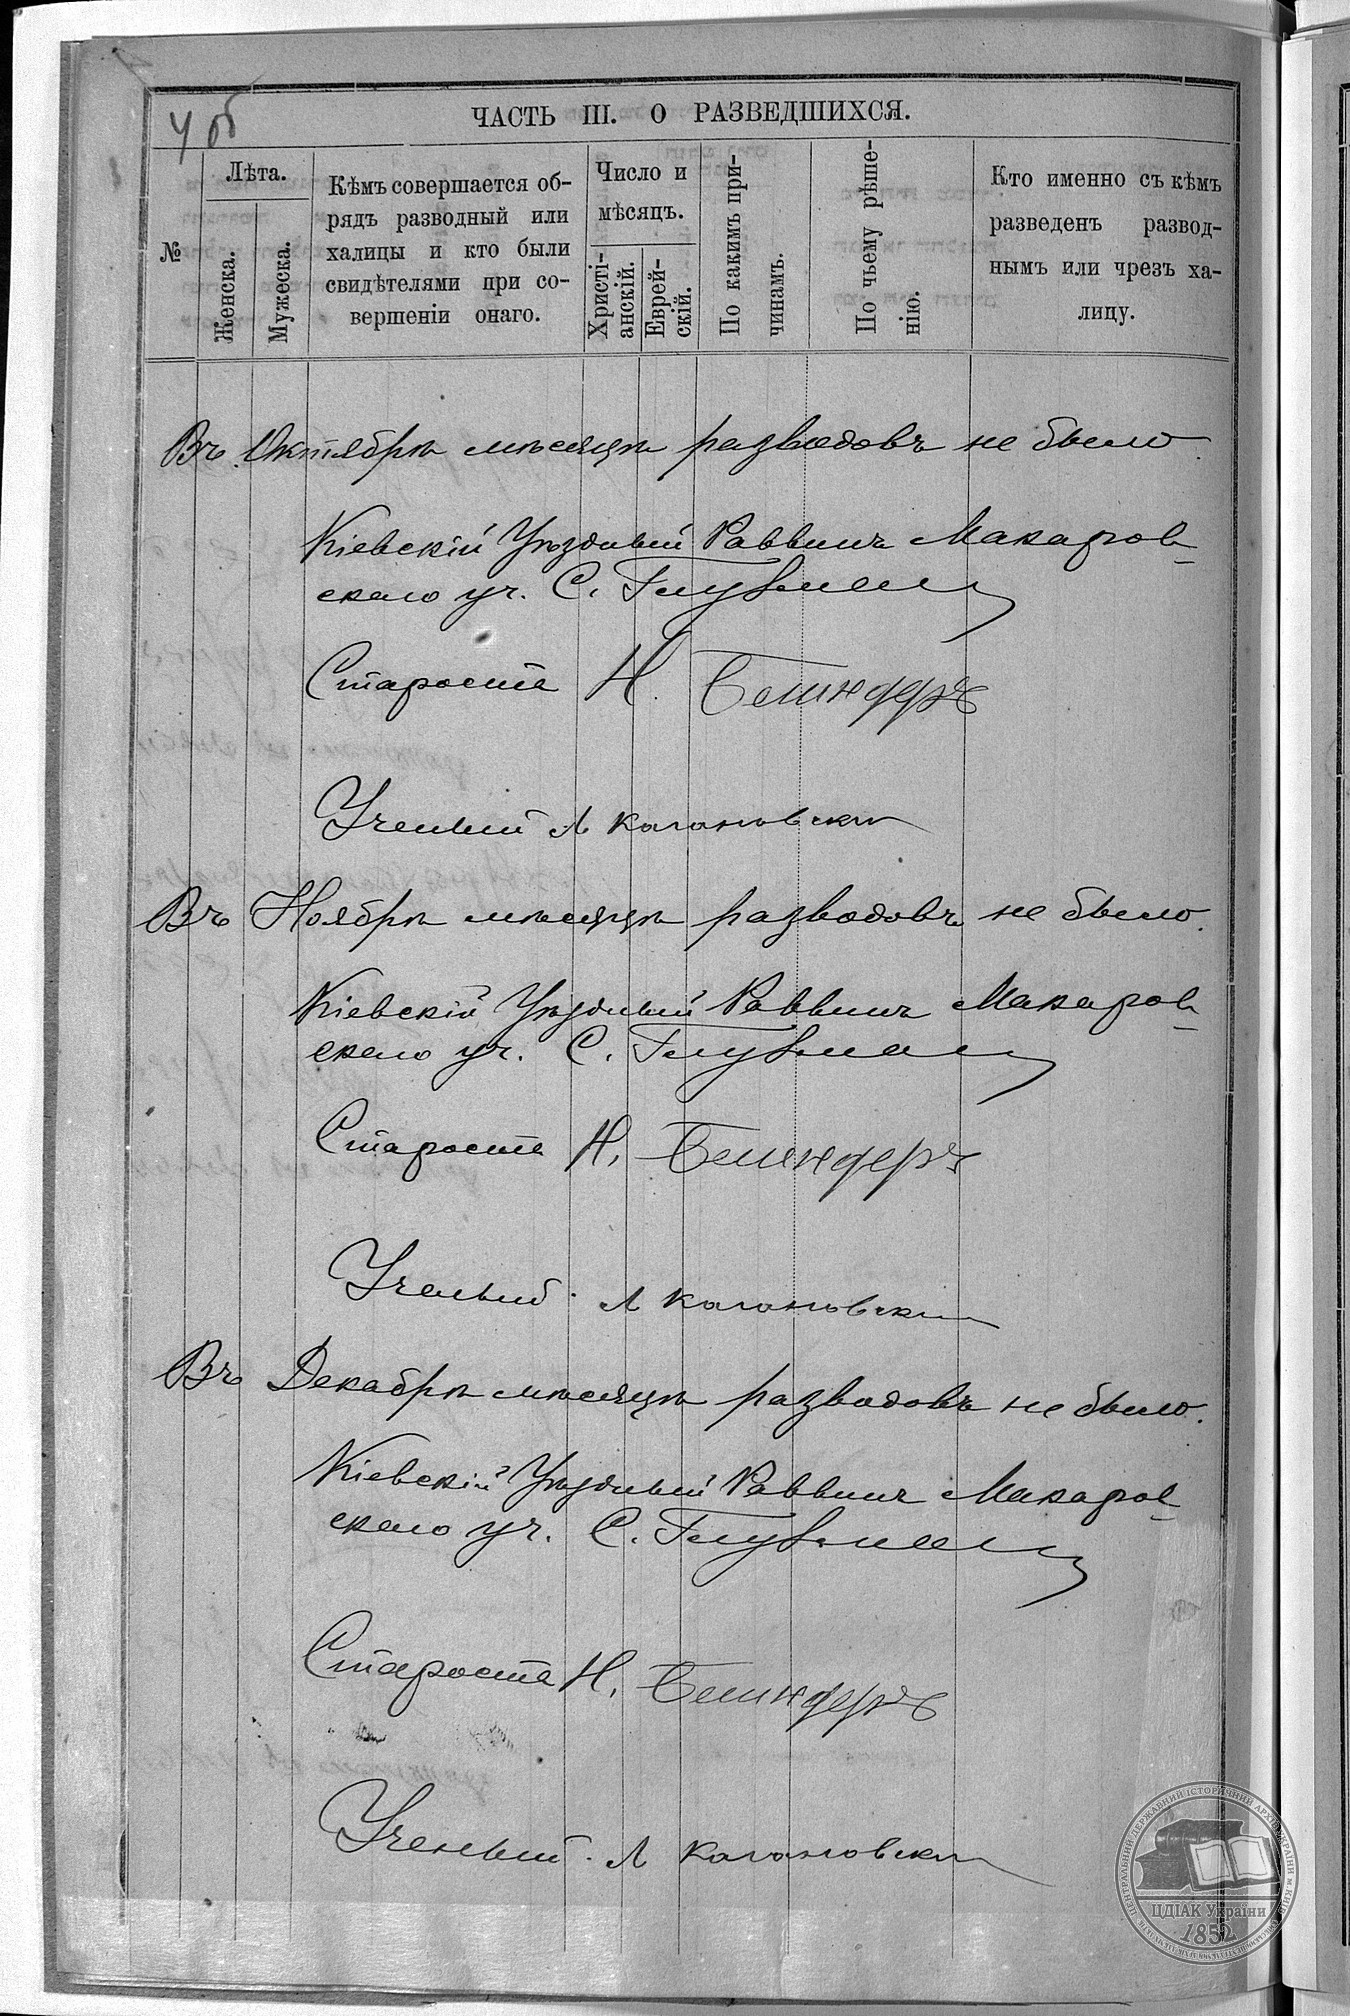 4 об
ЧАСТЬ III. О РАЗВЕДШИХСЯ.
№
Лѣта.
Женска.
Мужеска.
Кѣмъ совершается об-
рядъ разводный или
халицы и кто были
свидѣтелями при со-
вершеніи онаго.
Число и
мѣсяцъ.
Христі-
анскій.
Еврей-
скій.
По какимъ при-
чинамъ.
По чьему рѣше-
нію.
Кто именно съ кѣмъ
разведенъ развод-
нымъ или чрезъ ха-
лицу.
Въ Октябрѣ мѣсяцѣ разводовъ не было.
Кіевскій Уѣздный Раввинъ Макаров-
скаго уч. С. Глузман
Староста Н. Блиндеръ
Ученый Л Кагановский
Въ Ноябрѣ мѣсяцѣ разводовъ не было.
Кіевскій Уѣздный Раввинъ Макаров-
скаго уч. С. Глузман
Староста Н. Блиндеръ
Ученый Л Кагановский
Въ Декабрѣ мѣсяцѣ разводовъ не было.
Кіевскій Уѣздный Раввинъ Макаров-
скаго уч. С. Глузман
Староста Н. Блиндеръ
Ученый Л Кагановский
ЦЕНТРАЛЬНИЙ ДЕРЖАВНИЙ ІСТОРИЧНИЙ АРХІВ УКРАЇНИ м. КИЇВ
ЦДІАК України
1852